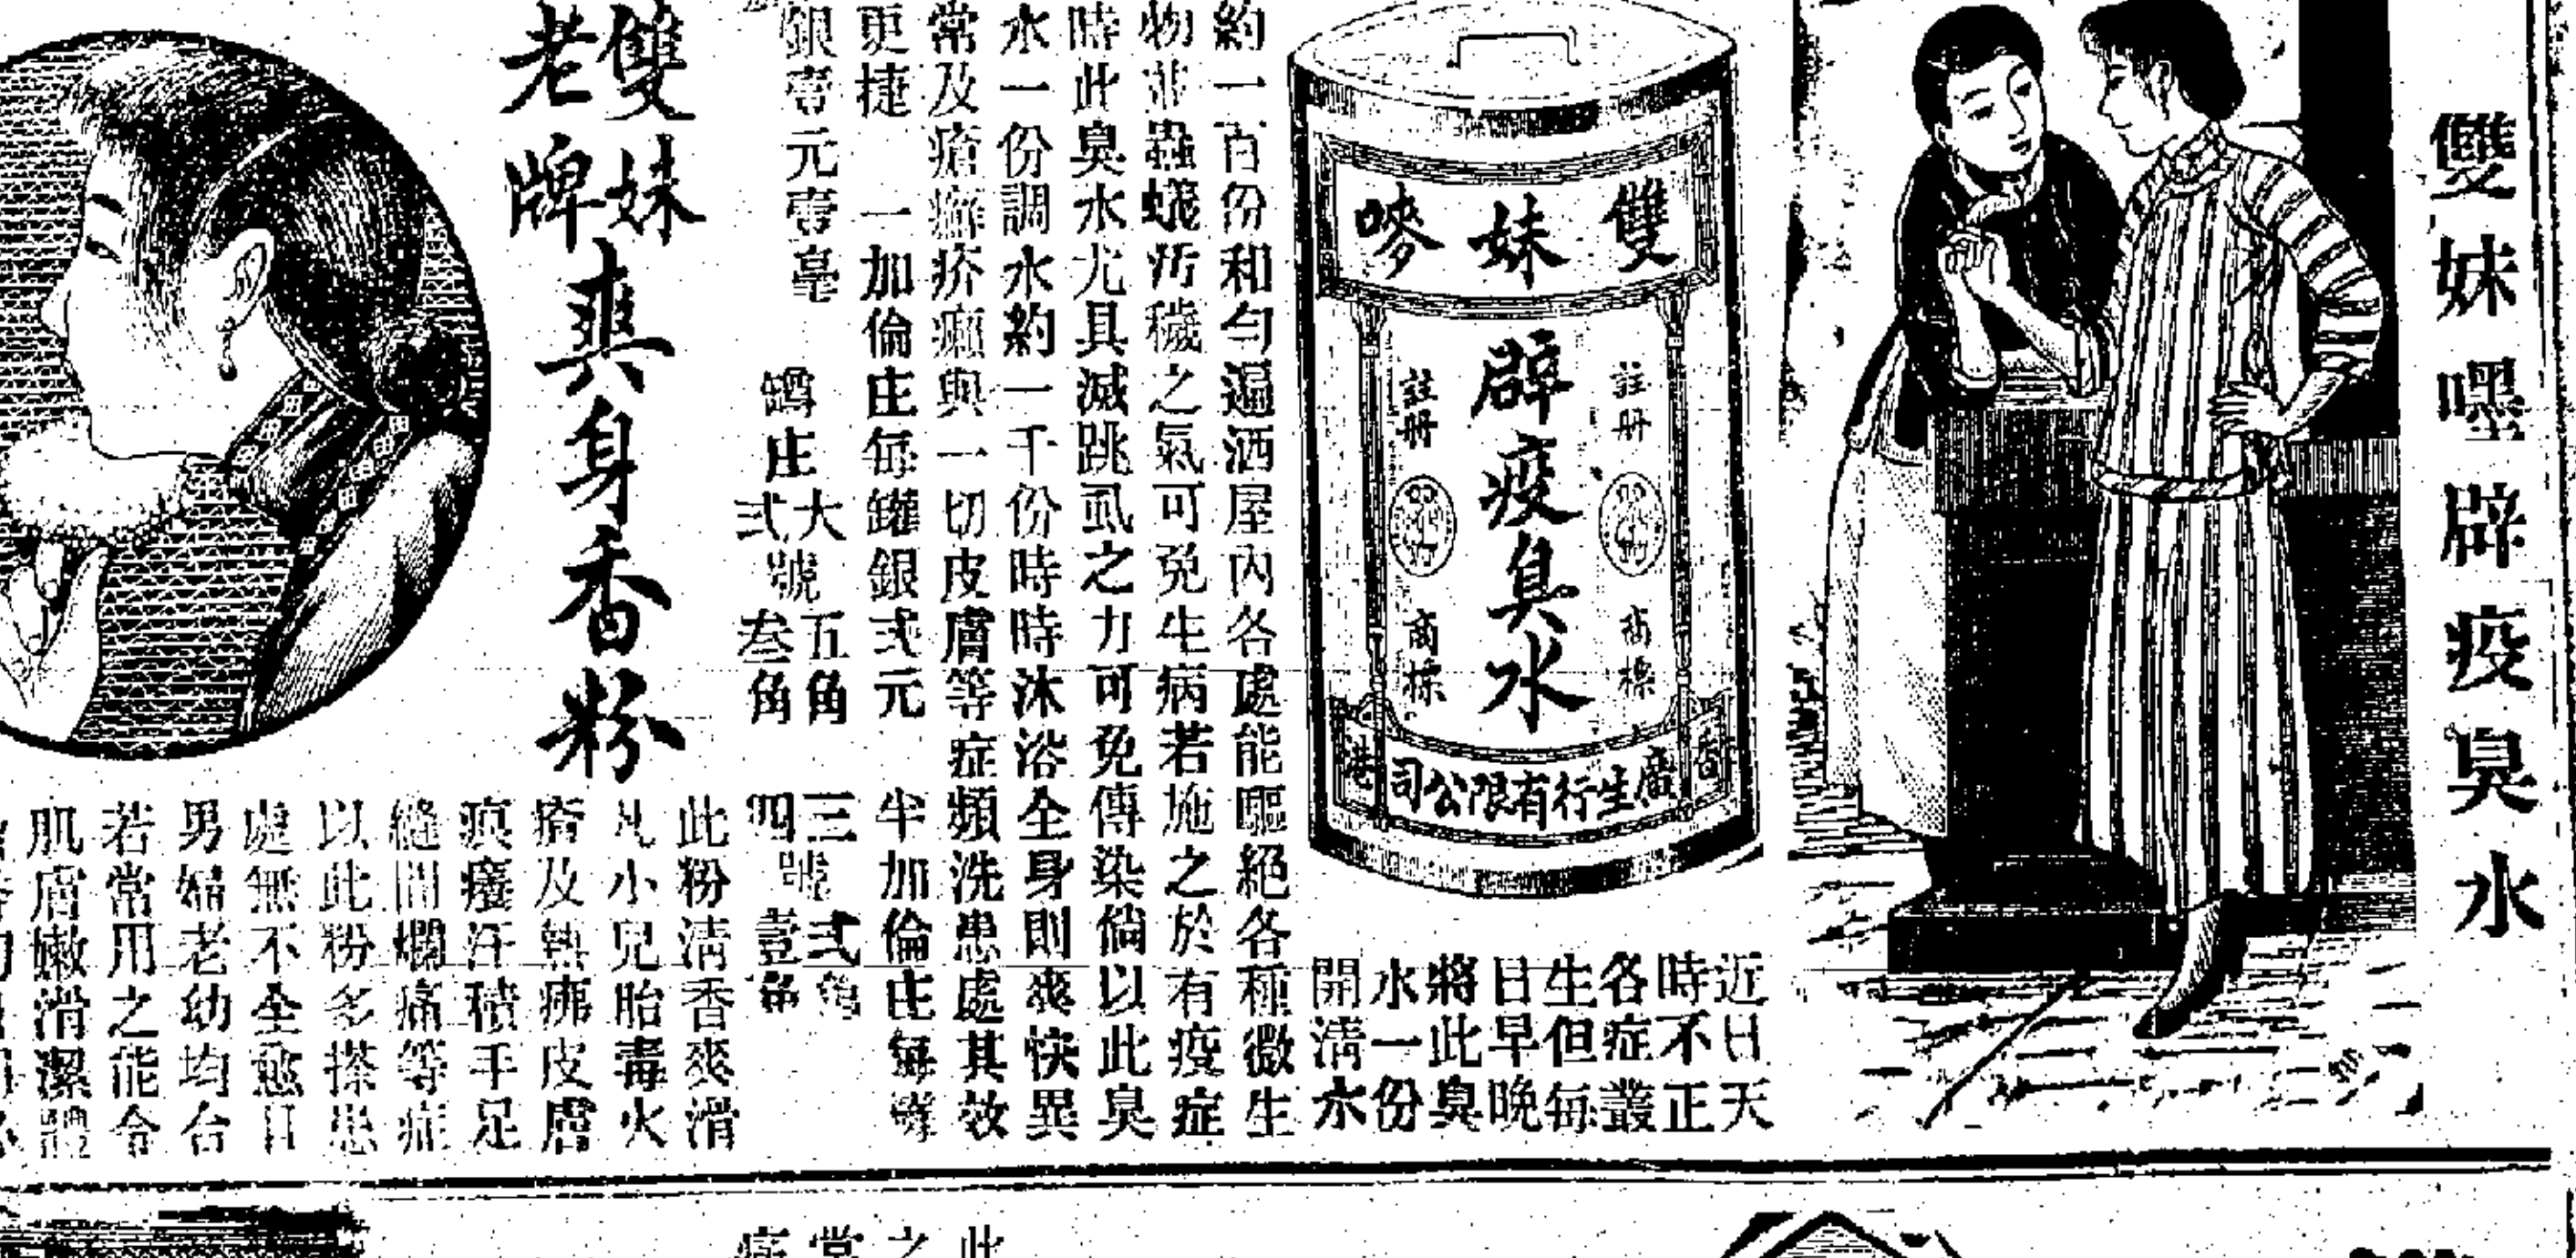 雙妹嘿辟疫臭水
雙妹嘜
辟疫臭水
註册
商標
註册
商標
香港
廣生行有限公司
近日天
時不正
各症叢
生但每
日早晚
將此臭
水一份
開清水
約一百份和勻遍洒屋內各處能驅絕各種微生
物並蟲蟻所穢之氣可免生病若施之於有疫症
時此臭水尤具滅跳虱之力可免傳染倘以此臭
水一份調水約一千份時時沐浴全身則爽快異
常及瘡癬疥癩與一切皮膚等症頻洗患處其效
更捷 一加倫庄每罐銀弍元 半加倫庄每罇
銀壹元壹毫
罇庄 大號五角 三號弍角
弍號叁角 四號壹角
雙妹
老牌
爽身香粉
此粉清香爽滑
凡小兒胎毒火
瘡及熱疿皮膚
痕癢汗積手足
縫間爛痛等症
以此粉多搽患
處無不全愈且
男婦老幼均合
若常用之能令
肌膚嫩滑潔體
此
之
常